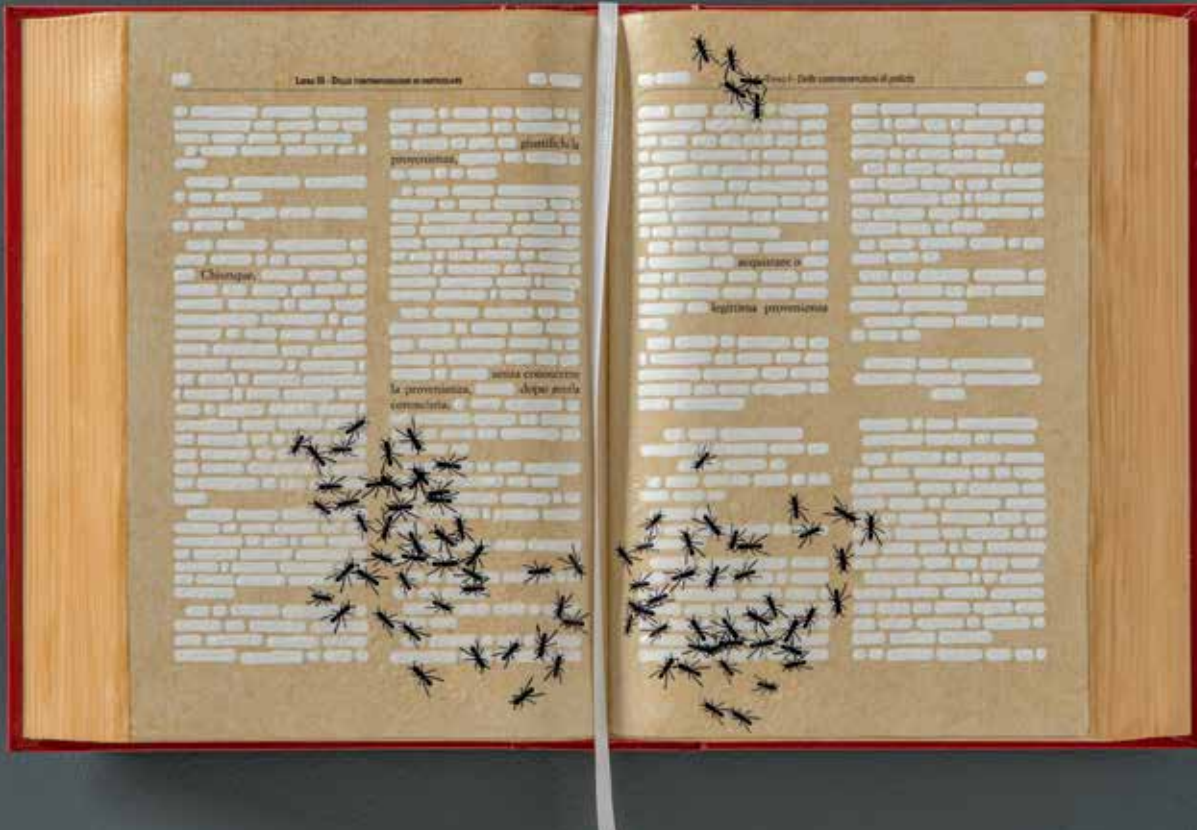 Libro III - Delle contravvenzioni in particolare
Chiunque,
giustifichi la
provenienza,
senza conoscerne
la provenienza, dopo averla
conosciuta,
Titolo I - Delle contravvenzioni di polizia
acquistare o
legittima provenienza